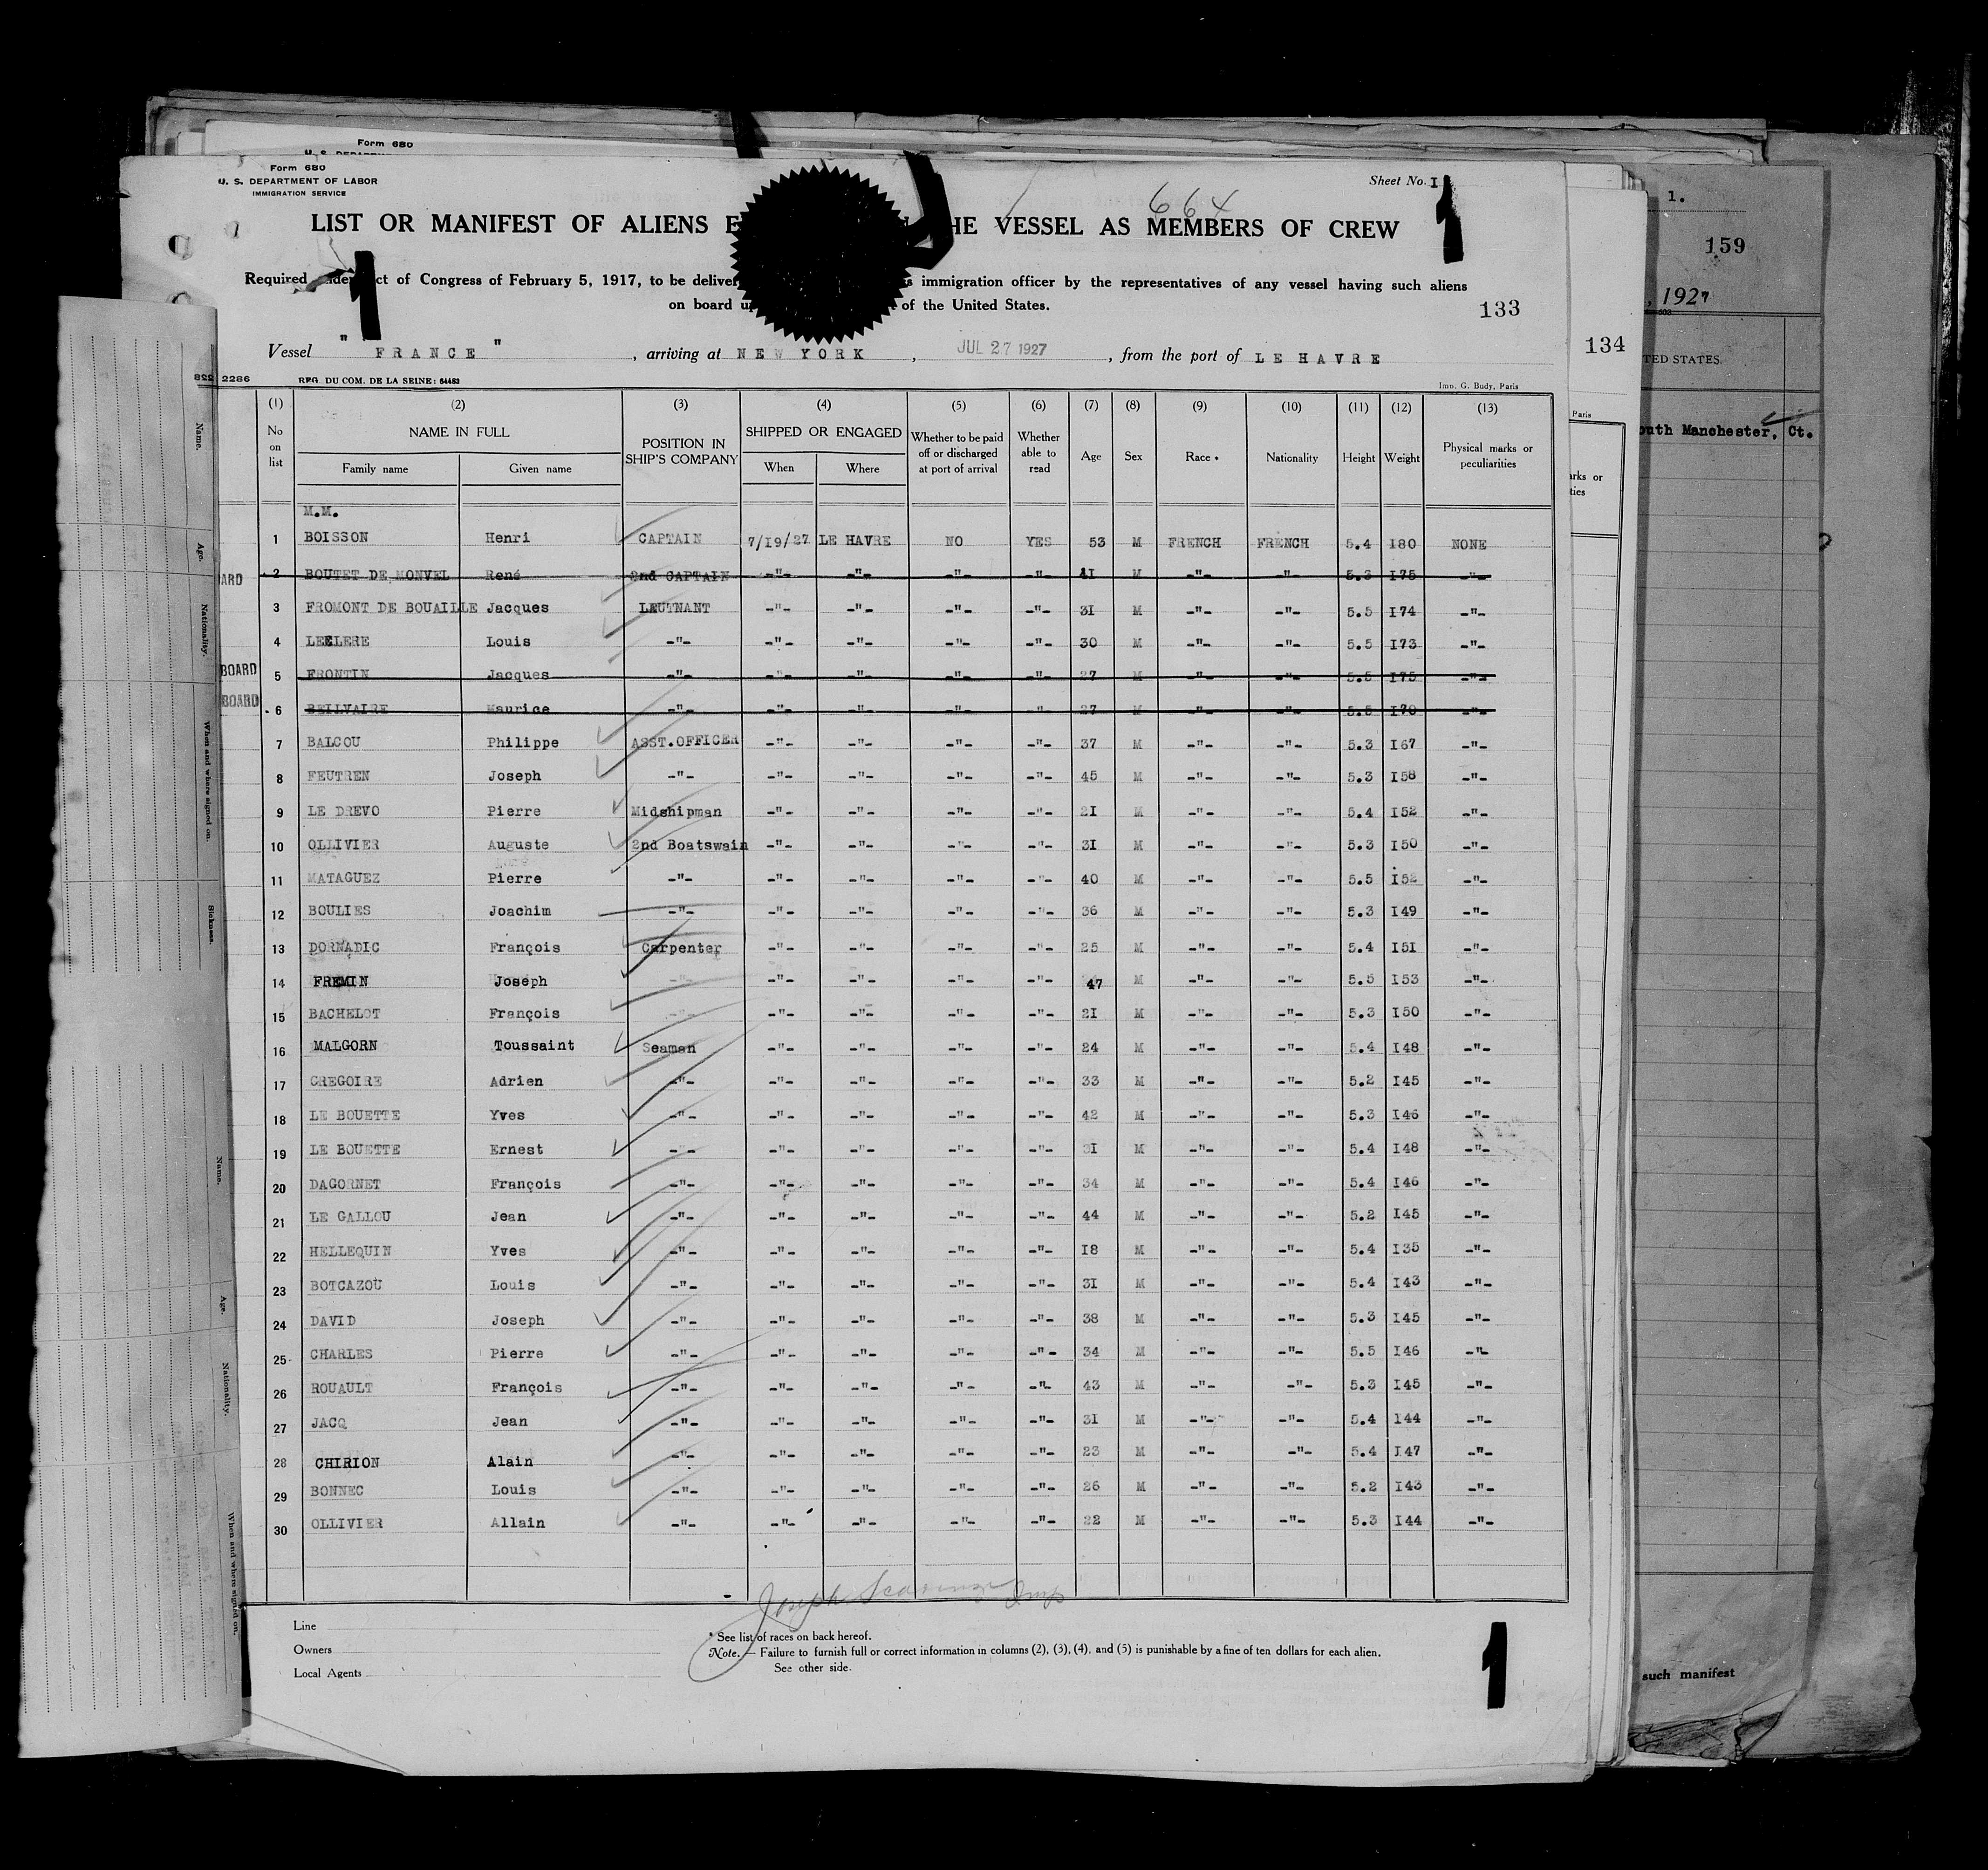 Form 680
Form 680
U. S. DEPARTMENT OF LABOR
IMMIGRATION SERVICE
Sheet No. I
664
LIST OR MANIFEST OF ALIENS E HE VESSEL AS MEMBERS OF CREW
1
1
Required ct of Congress of February 5, 1917, to be deliver immigration officer by the representatives of any vessel having such aliens
on board up of the United States.
133
Vessel " FRANCE " , arriving at NEW YORK , JUL 27 1927 , from the port of LE HAVRE
2286 REG. DU COM. DE LA SEINE: 64483 Imp. G. Budy, Paris
(1) (2) (3) (4) (5) (6) (7) (8) (9) (10) (11) (12) (13)
No on list NAME IN FULL POSITION IN SHIP'S COMPANY SHIPPED OR ENGAGED Whether to be paid off or discharged at port of arrival Whether able to read Age Sex Race * Nationality Height Weight Physical marks or peculiarities
Family name Given name When Where
M.M.
1 BOISSON Henri CAPTAIN 7/19/27 LE HAVRE NO YES 53 M FRENCH FRENCH 5.4 I80 NONE
2 BOUTET DE MONVEL René 2nd CAPTAIN -"- -"- -"- -"- 4I M -"- -"- 5.3 I75 -"-
3 FROMONT DE BOUAILLE Jacques LEUTNANT -"- -"- -"- -"- 3I M -"- -"- 5.5 I74 -"-
4 LECLERE Louis -"- -"- -"- -"- -"- 30 M -"- -"- 5.5 I73 -"-
5 FRONTIN Jacques -"- -"- -"- -"- -"- 27 M -"- -"- 5.5 I75 -"-
6 BELLVAIRE Maurice -"- -"- -"- -"- -"- 27 M -"- -"- 5.5 I70 -"-
7 BALCOU Philippe ASST.OFFICER -"- -"- -"- -"- 37 M -"- -"- 5.3 I67 -"-
8 FEUTREN Joseph -"- -"- -"- -"- -"- 45 M -"- -"- 5.3 I58 -"-
9 LE DREVO Pierre Midshipman -"- -"- -"- -"- 2I M -"- -"- 5.4 I52 -"-
10 OLLIVIER Auguste 2nd Boatswain -"- -"- -"- -"- 3I M -"- -"- 5.3 I50 -"-
11 MATAGUEZ Pierre -"- -"- -"- -"- -"- 40 M -"- -"- 5.5 I52 -"-
12 BOULIES Joachim -"- -"- -"- -"- -"- 36 M -"- -"- 5.3 I49 -"-
13 DORNADIC François Carpenter -"- -"- -"- -"- 25 M -"- -"- 5.4 I5I -"-
14 FREMIN Joseph -"- -"- -"- -"- -"- 47 M -"- -"- 5.5 I53 -"-
15 BACHELOT François -"- -"- -"- -"- -"- 2I M -"- -"- 5.3 I50 -"-
16 MALGORN Toussaint Seaman -"- -"- -"- -"- 24 M -"- -"- 5.4 I48 -"-
17 GREGOIRE Adrien -"- -"- -"- -"- -"- 33 M -"- -"- 5.2 I45 -"-
18 LE BOUETTE Yves -"- -"- -"- -"- -"- 42 M -"- -"- 5.3 I46 -"-
19 LE BOUETTE Ernest -"- -"- -"- -"- -"- 3I M -"- -"- 5.4 I48 -"-
20 DAGORNET François -"- -"- -"- -"- -"- 34 M -"- -"- 5.4 I46 -"-
21 LE GALLOU Jean -"- -"- -"- -"- -"- 44 M -"- -"- 5.2 I45 -"-
22 HELLEQUIN Yves -"- -"- -"- -"- -"- I8 M -"- -"- 5.4 I35 -"-
23 BOTCAZOU Louis -"- -"- -"- -"- -"- 3I M -"- -"- 5.4 I43 -"-
24 DAVID Joseph -"- -"- -"- -"- -"- 38 M -"- -"- 5.3 I45 -"-
25 CHARLES Pierre -"- -"- -"- -"- -"- 34 M -"- -"- 5.5 I46 -"-
26 ROUAULT François -"- -"- -"- -"- -"- 43 M -"- -"- 5.3 I45 -"-
27 JACQ Jean -"- -"- -"- -"- -"- 3I M -"- -"- 5.4 I44 -"-
28 CHIRION Alain -"- -"- -"- -"- -"- 23 M -"- -"- 5.4 I47 -"-
29 BONNEC Louis -"- -"- -"- -"- -"- 26 M -"- -"- 5.2 I43 -"-
30 OLLIVIER Allain -"- -"- -"- -"- -"- 22 M -"- -"- 5.3 I44 -"-
Joseph
Line
Owners
Local Agents
* See list of races on back hereof.
Note. — Failure to furnish full or correct information in columns (2), (3), (4), and (5) is punishable by a fine of ten dollars for each alien.
See other side.
1
ARD
BOARD
BOARD
Name.
Age.
Nationality.
When and where signed on.
Sickness.
Name.
Age.
Nationality.
When and where signed on.
134
Paris
arks or
ties
1.
159
, 1927
TED STATES.
outh Manchester, Ct.
such manifest